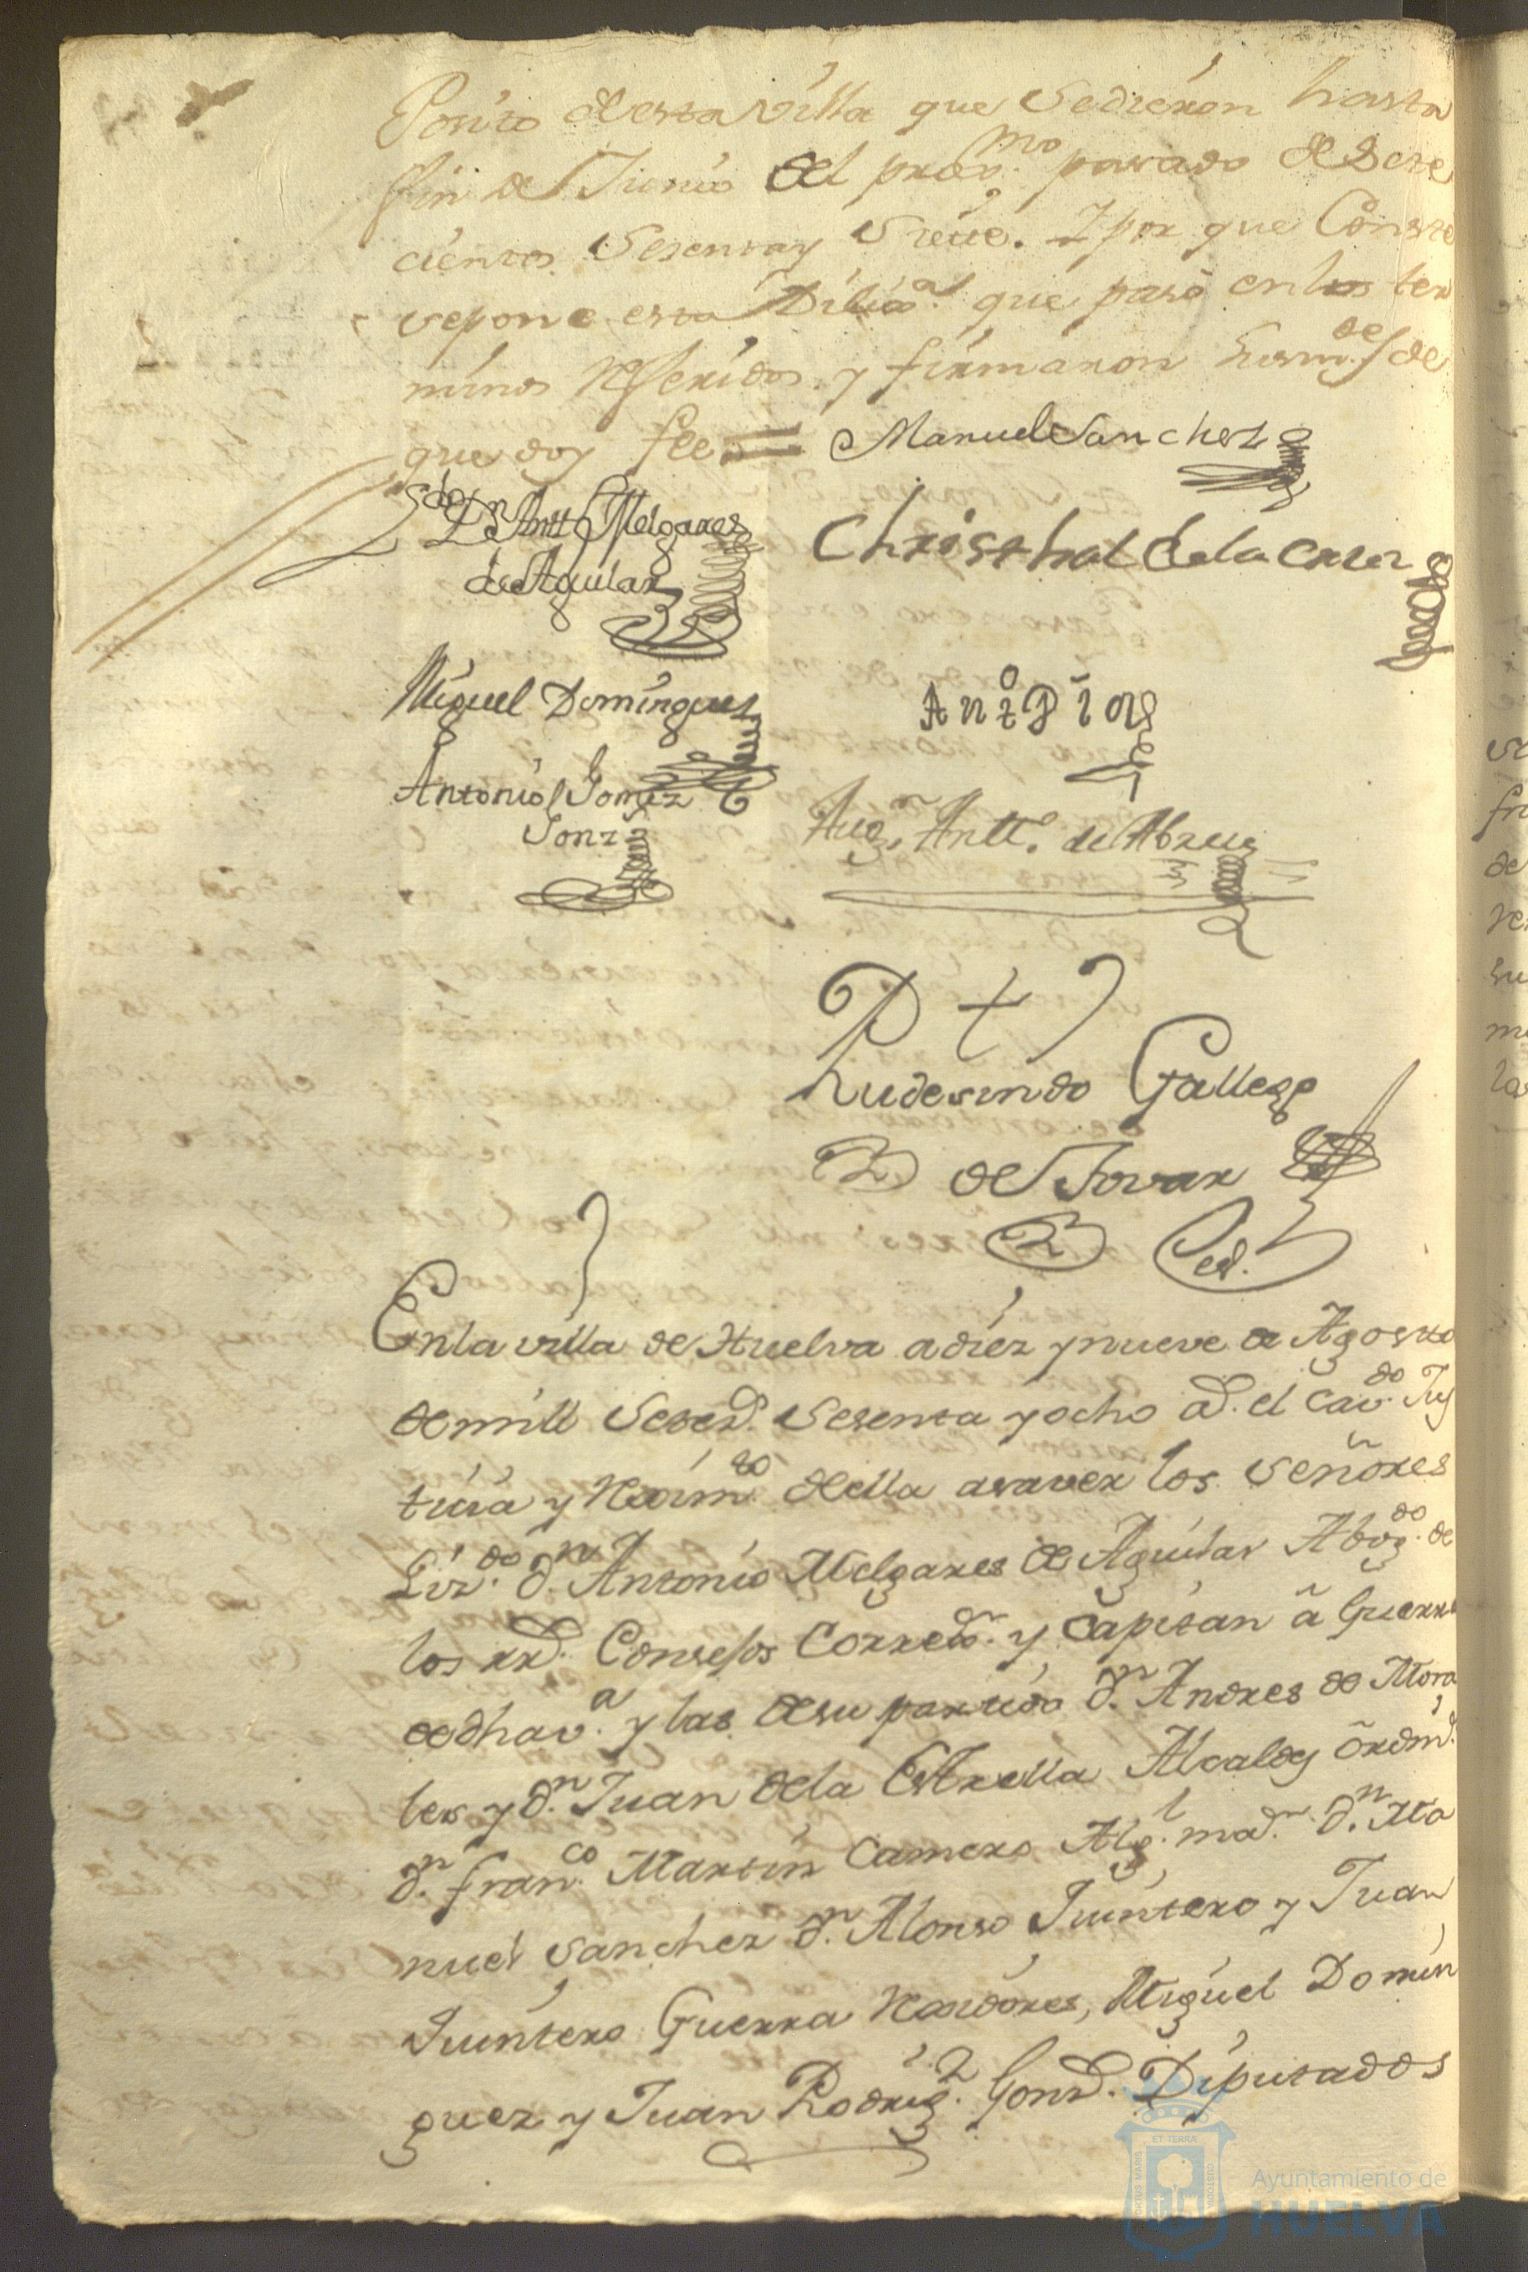 Posito desta Villa que sedieron hasta
fin de Junio del prox.mo pasado de Sete
cientos Sesentay Siete. Y por que Conste
sepone esta Dilix.a que pasó enlos ter
minos Referidos y firmaron Susm.des de
que doy fee =
Manuel Sanchez
Lzdo Dn Antt.o Melgarez
de Aguilar
Christhal dela crus
Miguel Dominguez
Ant.o Pioz
Antonio Gomez
Gonz
Aug.n Antt.o de Abreu
Rudesindo Gallego
de Tovar
Enla villa de Huelva adiez ynueve de Agosto
demill Seted.s Sesenta yocho a.s el Cav.do Jus
ticia y Rexim.to della asaver los Señores
Liz.do d.n Antonio Melgares de Aguilar Abog.do de
los rr.s Consejos Corred.or y Capitan â Guerra
dedha v.a y las desu partido d.n Andres de Mora
les y d.n Juan dela Estrella Alcaldes ordin.s
d.n Fran.co Martin Camero Alg.l ma.or d.n Ma
nuel Sanchez d.n Alonso Quintero y Juan
Quintero Guerra Rexidores, Miguel Domin
guez y Juan Rodrig.z Gonz.s Diputados
ET TERRA
PORTUS MARIS
CUSTODIA
Ayuntamiento de
HUELVA